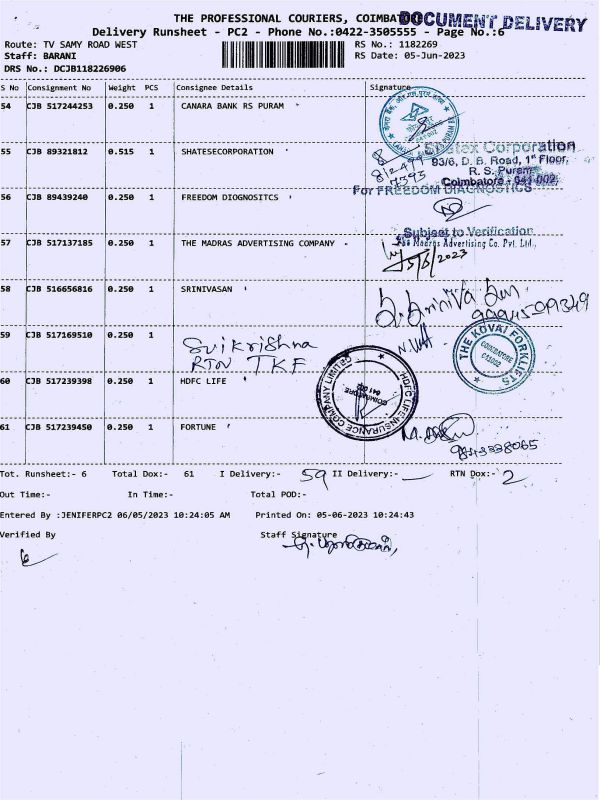 THE PROFESSIONAL COURIERS, COIMBATORE
DOCUMENT DELIVERY
Delivery Runsheet - PC2 - Phone No.:0422-3505555 - Page No.:6
Route: TV SAMY ROAD WEST RS No.: 1182269
Staff: BARANI RS Date: 05-Jun-2023
DRS No.: DCJB118226906
S No Consignment No Weight PCS Consignee Details Signature
54 CJB 517244253 0.250 1 CANARA BANK RS PURAM
55 CJB 89321812 0.515 1 SHATESECORPORATION
Corporation
93/6, D. B. Road, 1st Floor,
R. S. Puram
Coimbatore - 641 002
For FREEDOM DIAGNOSTICS
56 CJB 89439240 0.250 1 FREEDOM DIOGNOSITCS
Subject to Verification
57 CJB 517137185 0.250 1 THE MADRAS ADVERTISING COMPANY
Madras Advertising Co. Pvt. Ltd.,
5/6/2023
58 CJB 516656816 0.250 1 SRINIVASAN
59 CJB 517169510 0.250 1 Sri Krishna
RTN TKF
THE KOVAI FORKLIFTS
COIMBATORE
641002
60 CJB 517239398 0.250 1 HDFC LIFE
HDFC LIFE INSURANCE COMPANY LIMITED
COIMBATORE
641 002
61 CJB 517239450 0.250 1 FORTUNE
Tot. Runsheet:- 6 Total Dox:- 61 I Delivery:- 59 II Delivery:- RTN Dox:- 2
Out Time:- In Time:- Total POD:-
Entered By :JENIFERPC2 06/05/2023 10:24:05 AM Printed On: 05-06-2023 10:24:43
Verified By Staff Signature